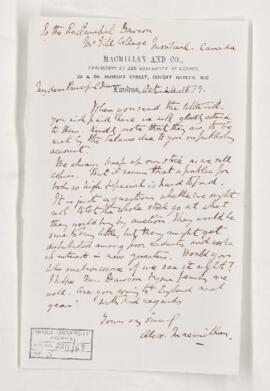 To the Rev. Principal Dawson
McGill College Montreal. Canada
MACMILLAN AND CO.,
PUBLISHERS TO THE UNIVERSITY OF OXFORD,
29 & 30, BEDFORD STREET, COVENT GARDEN, W.C.
London, Oct 24. 1879.
My dear Principal Dawson
When you send the
you wish paid there we will gladly attend
to them. Kindly note that they are to be
met by the balance due to you on publishing
account.
We always keep up our stock as we sell
copies. But it seems that a public for
both so high special is hard to find.
It is just a question whether we ought
not to let the whole stock go at what
they would bring by auction. They would be
sure to bring little, but they might get
distributed among poor students, and excite
an interest in new quarters. Would you
like such a course if we see it right?
I hope Mrs. Dawson & your family are
well. Are you coming to England next
year? With kind regards
Yours very sincerely
Alex. Macmillan.
McGILL UNIVERSITY
ARCHIVES
ACC. NO. 2211/69
REF. 5